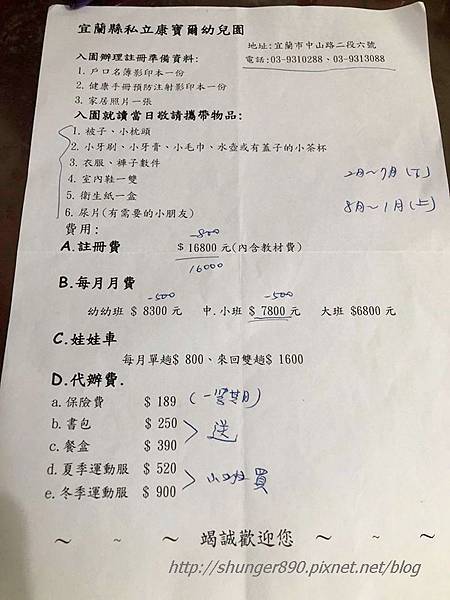 宜蘭縣私立康寶爾幼兒園
地址:宜蘭市中山路二段六號
電話:03-9310288、03-9313088
入園辦理註冊準備資料:
1. 戶口名簿影印本一份
2. 健康手冊預防注射影印本一份
3. 家居照片一張
入園就讀當日敬請攜帶物品:
1. 被子、小枕頭
2. 小牙刷、小牙膏、小毛巾、水壺或有蓋子的小茶杯
3. 衣服、褲子數件
4. 室內鞋一雙
2月~7月(下)
5. 衛生紙一盒
8月~1月(上)
6. 尿片(有需要的小朋友)
費用:
-800
A.註冊費 $16800元(內含教材費)
16000
B.每月月費
-500 -500
幼幼班 $ 8300 元 中.小班 $ 7800元 大班 $6800元
C.娃娃車
每月單趟$ 800、來回雙趟$ 1600
D.代辦費.
a.保險費 $ 189 (一學期)
b.書包 $ 250
送
c.餐盒 $ 390
d.夏季運動服 $ 520
小班買
e.冬季運動服 $ 900
~ ~ ~ 竭誠歡迎您 ~ ~ ~
http://shunger890.pixnet.net/blog